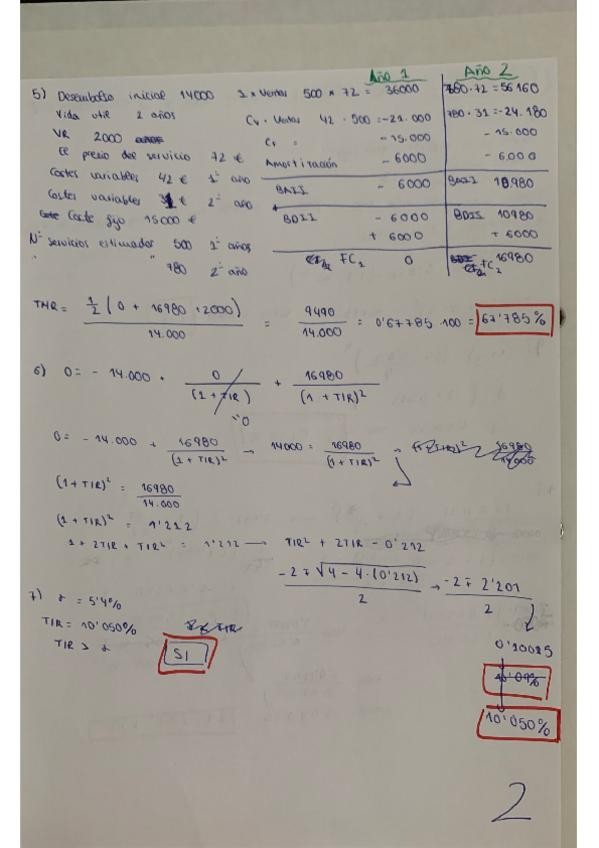 Año 1 Año 2
5) Desembolso inicial 14000 I x Ventas 500 x 72 = 36000 780 · 72 = 56160
Vida util 2 años Cv · Ventas 42 · 500 = -21.000 780 · 31 = -24.180
VR 2000 CF = - 15.000 - 15.000
El precio del servicio 72 € Amortización - 6000 - 6.000
Costes variables 42 € 1º año BAII - 6000 BAII 10.980
Costes variables 31 € 2º año
Coste fijo 15000 € BDII - 6000 BDII 10980
Nº servicios estimados 500 1º años + 6000 + 6000
" 780 2º año FC2 0 FC2 16980
TMR = 1/2 (0 + 16980 + 2000) / 14.000 = 9490 / 14.000 = 0'67785 · 100 = 67'785%
6) 0 = - 14.000 + 0 / (1 + TIR) + 16980 / (1 + TIR)²
"0
0 = - 14.000 + 16980 / (1 + TIR)² → 14000 = 16980 / (1 + TIR)²
(1 + TIR)² = 16980 / 14.000
(1 + TIR)² = 1'212
1 + 2TIR + TIR² = 1'212 → TIR² + 2TIR - 0'212
-2 ∓ √4 - 4 · (0'212) / 2 → -2 ∓ 2'201 / 2
7) r = 5'4%
TIR = 10'050%
TIR > r SI
10'050%
2